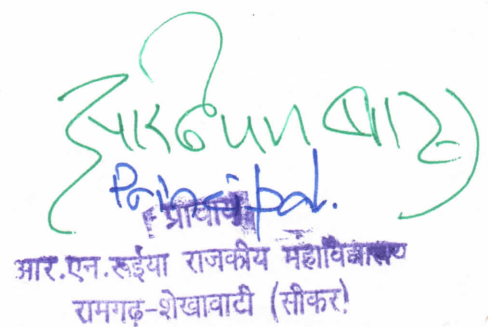 Principal.
प्राचार्य
आर.एन.रूईया राजकीय महाविद्यालय
रामगढ़-शेखावाटी (सीकर)